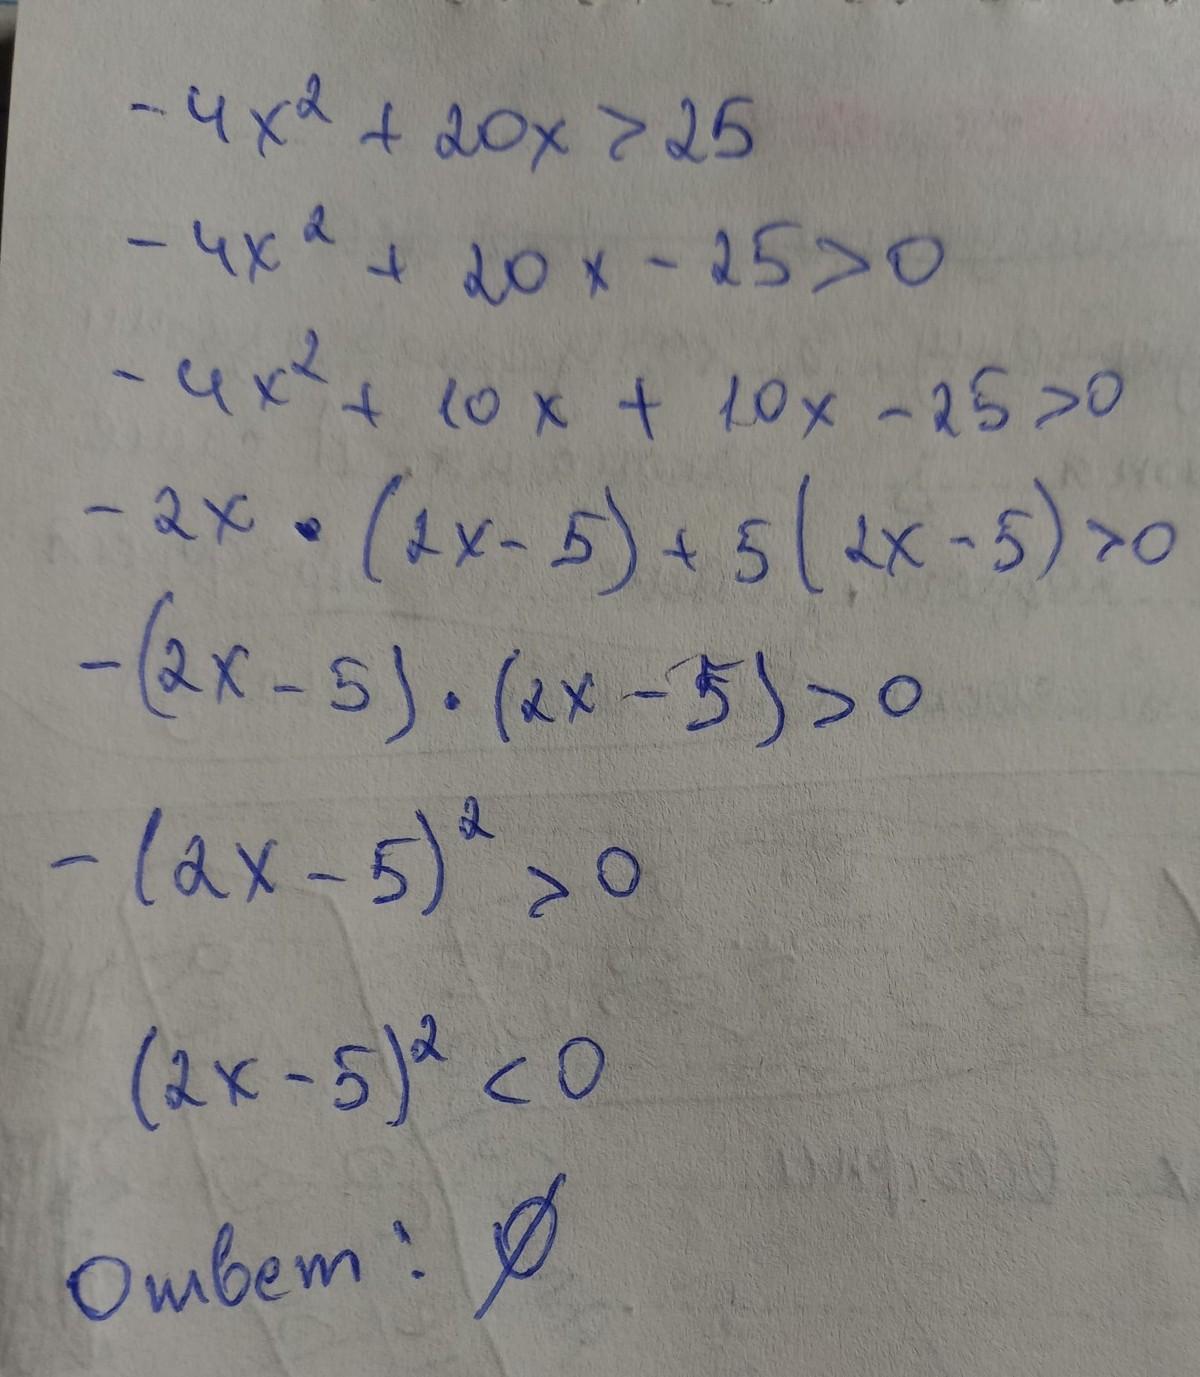 -4x² + 20x > 25
-4x² + 20x - 25 > 0
-4x² + 10x + 10x - 25 > 0
-2x · (2x - 5) + 5(2x - 5) > 0
-(2x - 5) · (2x - 5) > 0
-(2x - 5)² > 0
(2x - 5)² < 0
Ответ: ∅